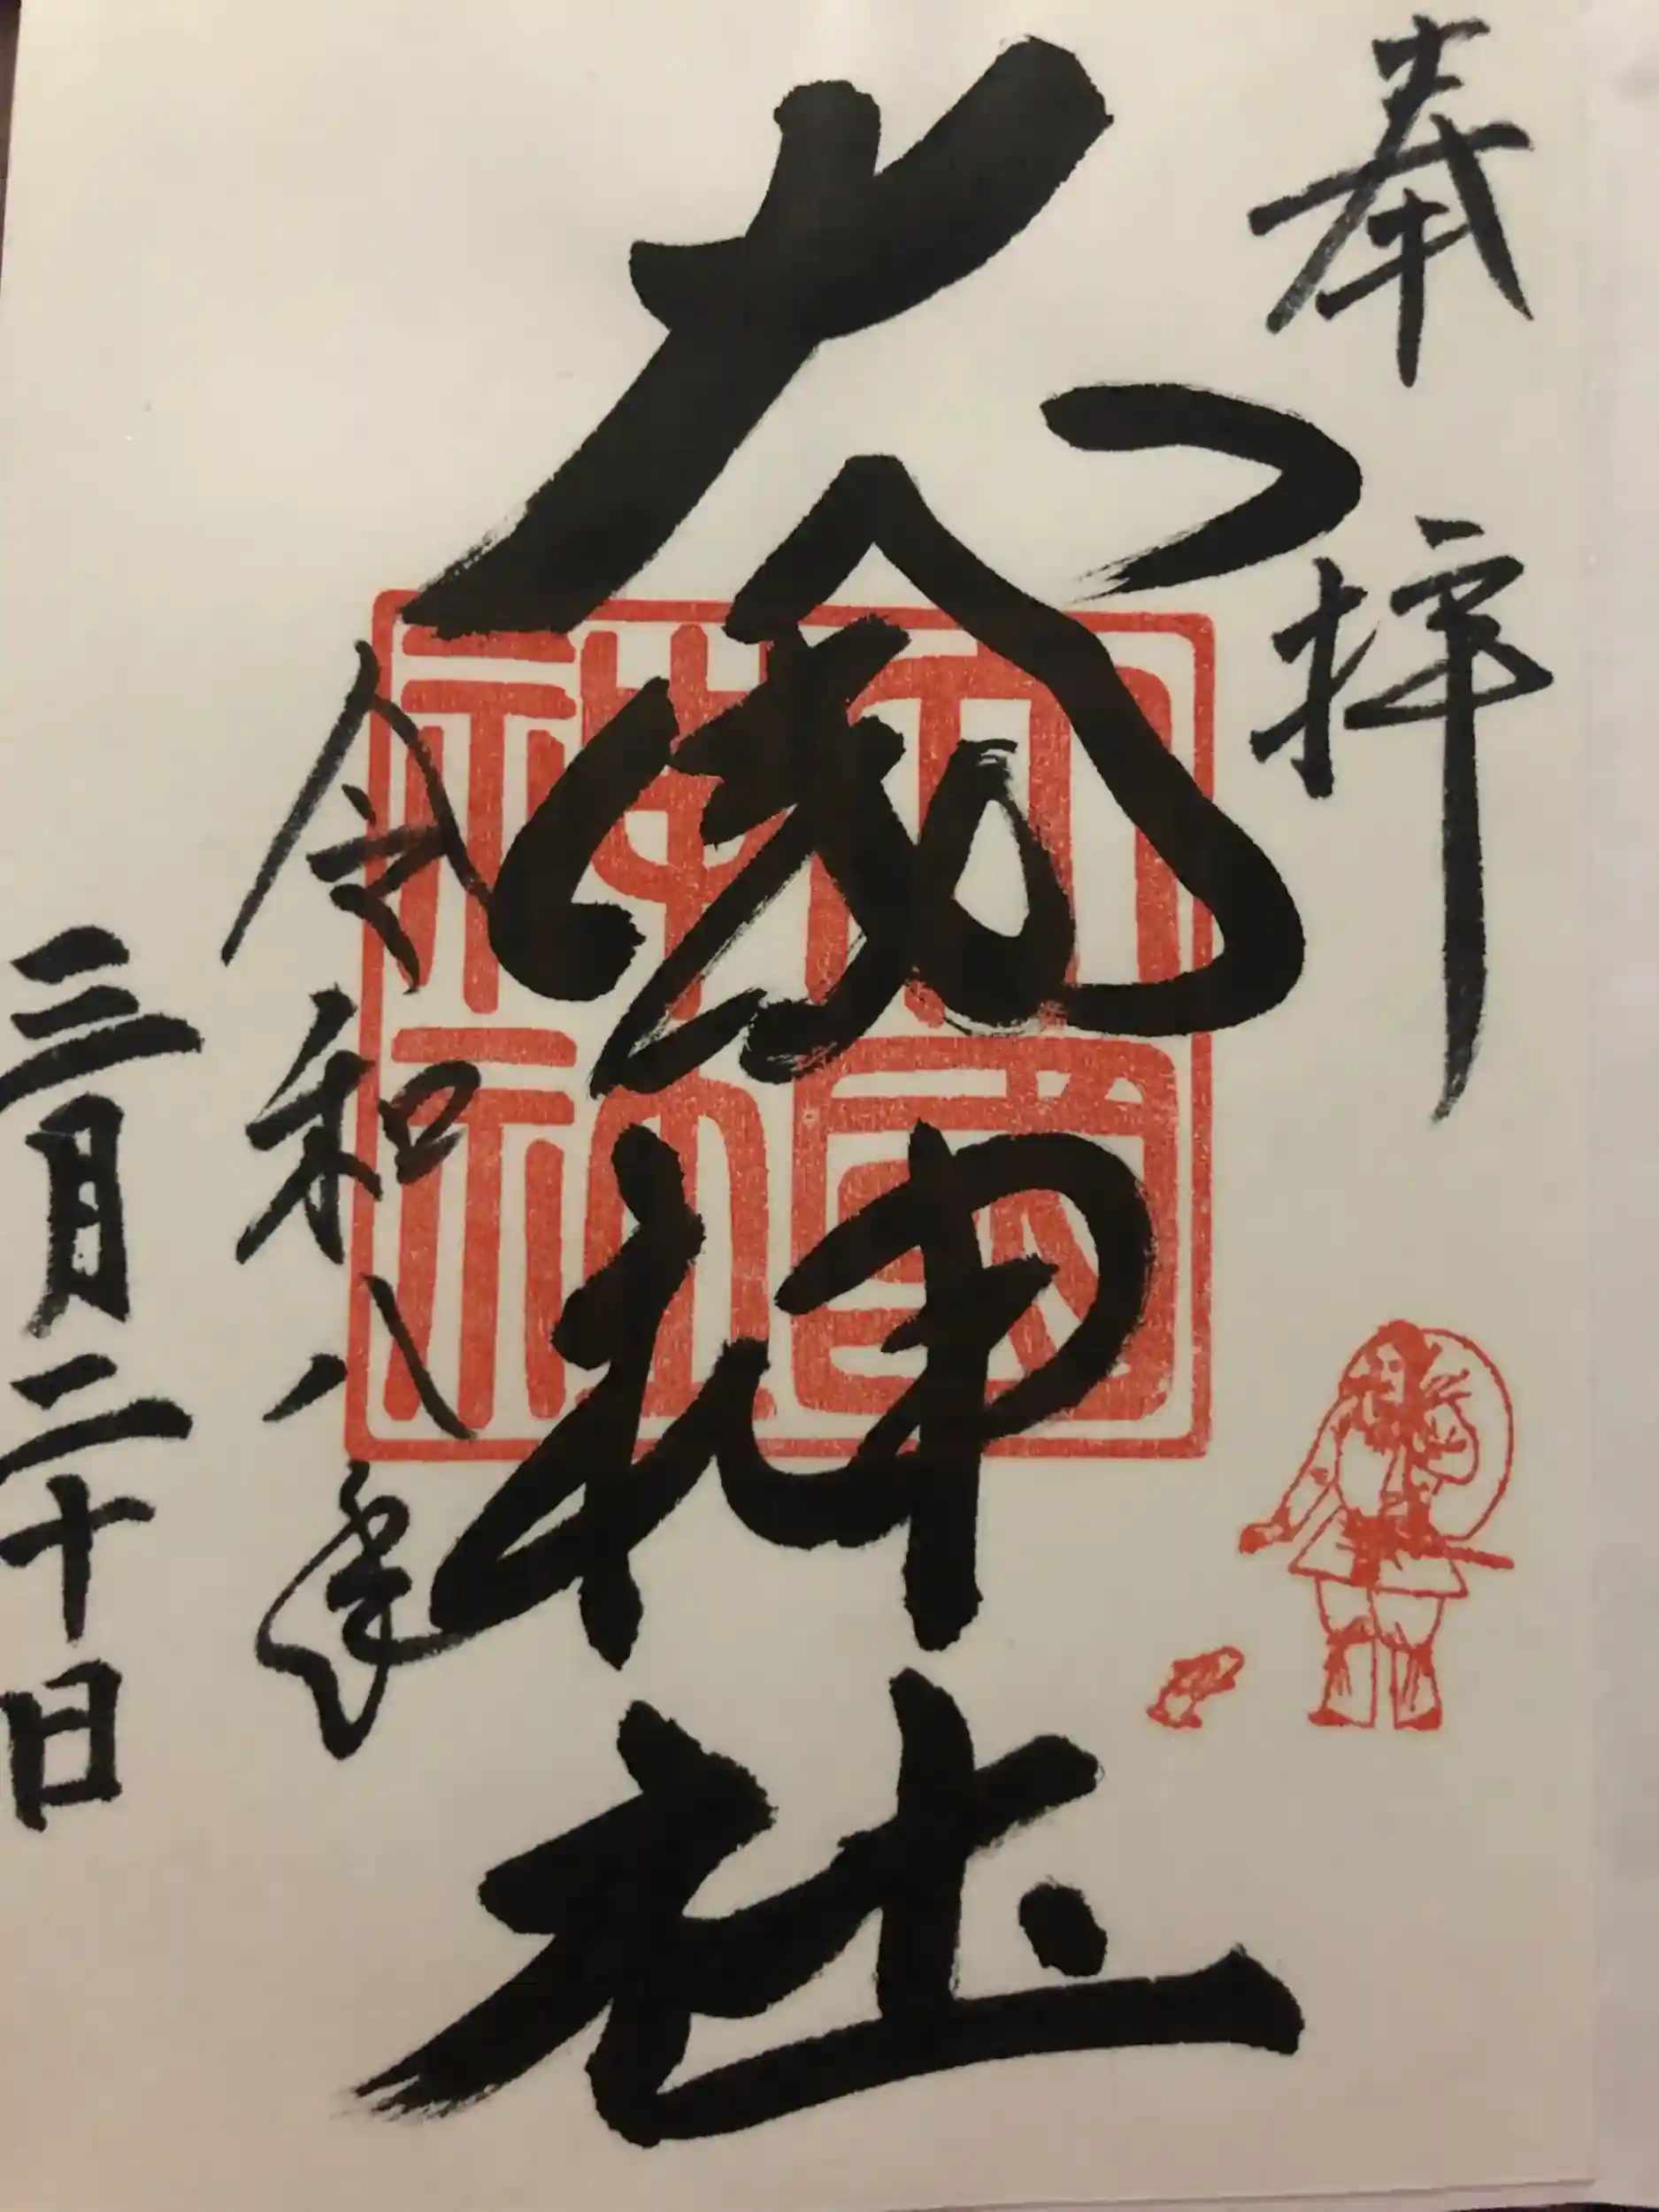 奉拝
大國神社
大國神社
令和八年
三月二十日